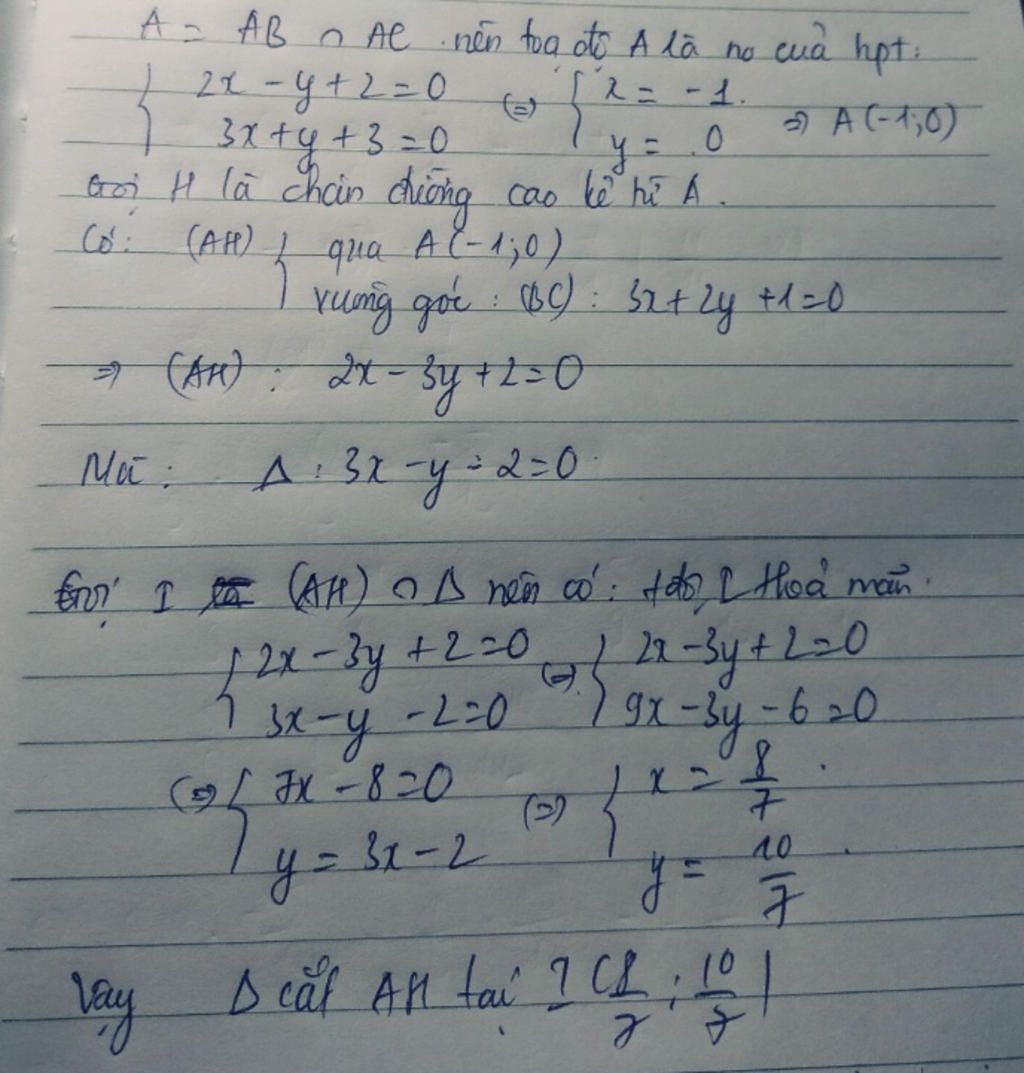 A = AB ∩ AC nên toạ độ A là no của hpt:
{ 2x - y + 2 = 0 (=) { x = -1.
3x + y + 3 = 0 y = 0 => A(-1;0)
Gọi H là chân đường cao kẻ từ A.
Có: (AH) { qua A(-1;0)
vuông góc: (BC): 3x + 2y + 1 = 0
=> (AH): 2x - 3y + 2 = 0
Mà: Δ: 3x - y - 2 = 0.
Gọi I (AH) ∩ Δ nên có: tđộ I thoả mãn.
{ 2x - 3y + 2 = 0 (=) { 2x - 3y + 2 = 0
3x - y - 2 = 0 9x - 3y - 6 = 0
(=) { 7x - 8 = 0 (=) { x = 8/7.
y = 3x - 2 y = 10/7.
Vậy Δ cắt AH tại I (8/7; 10/7)